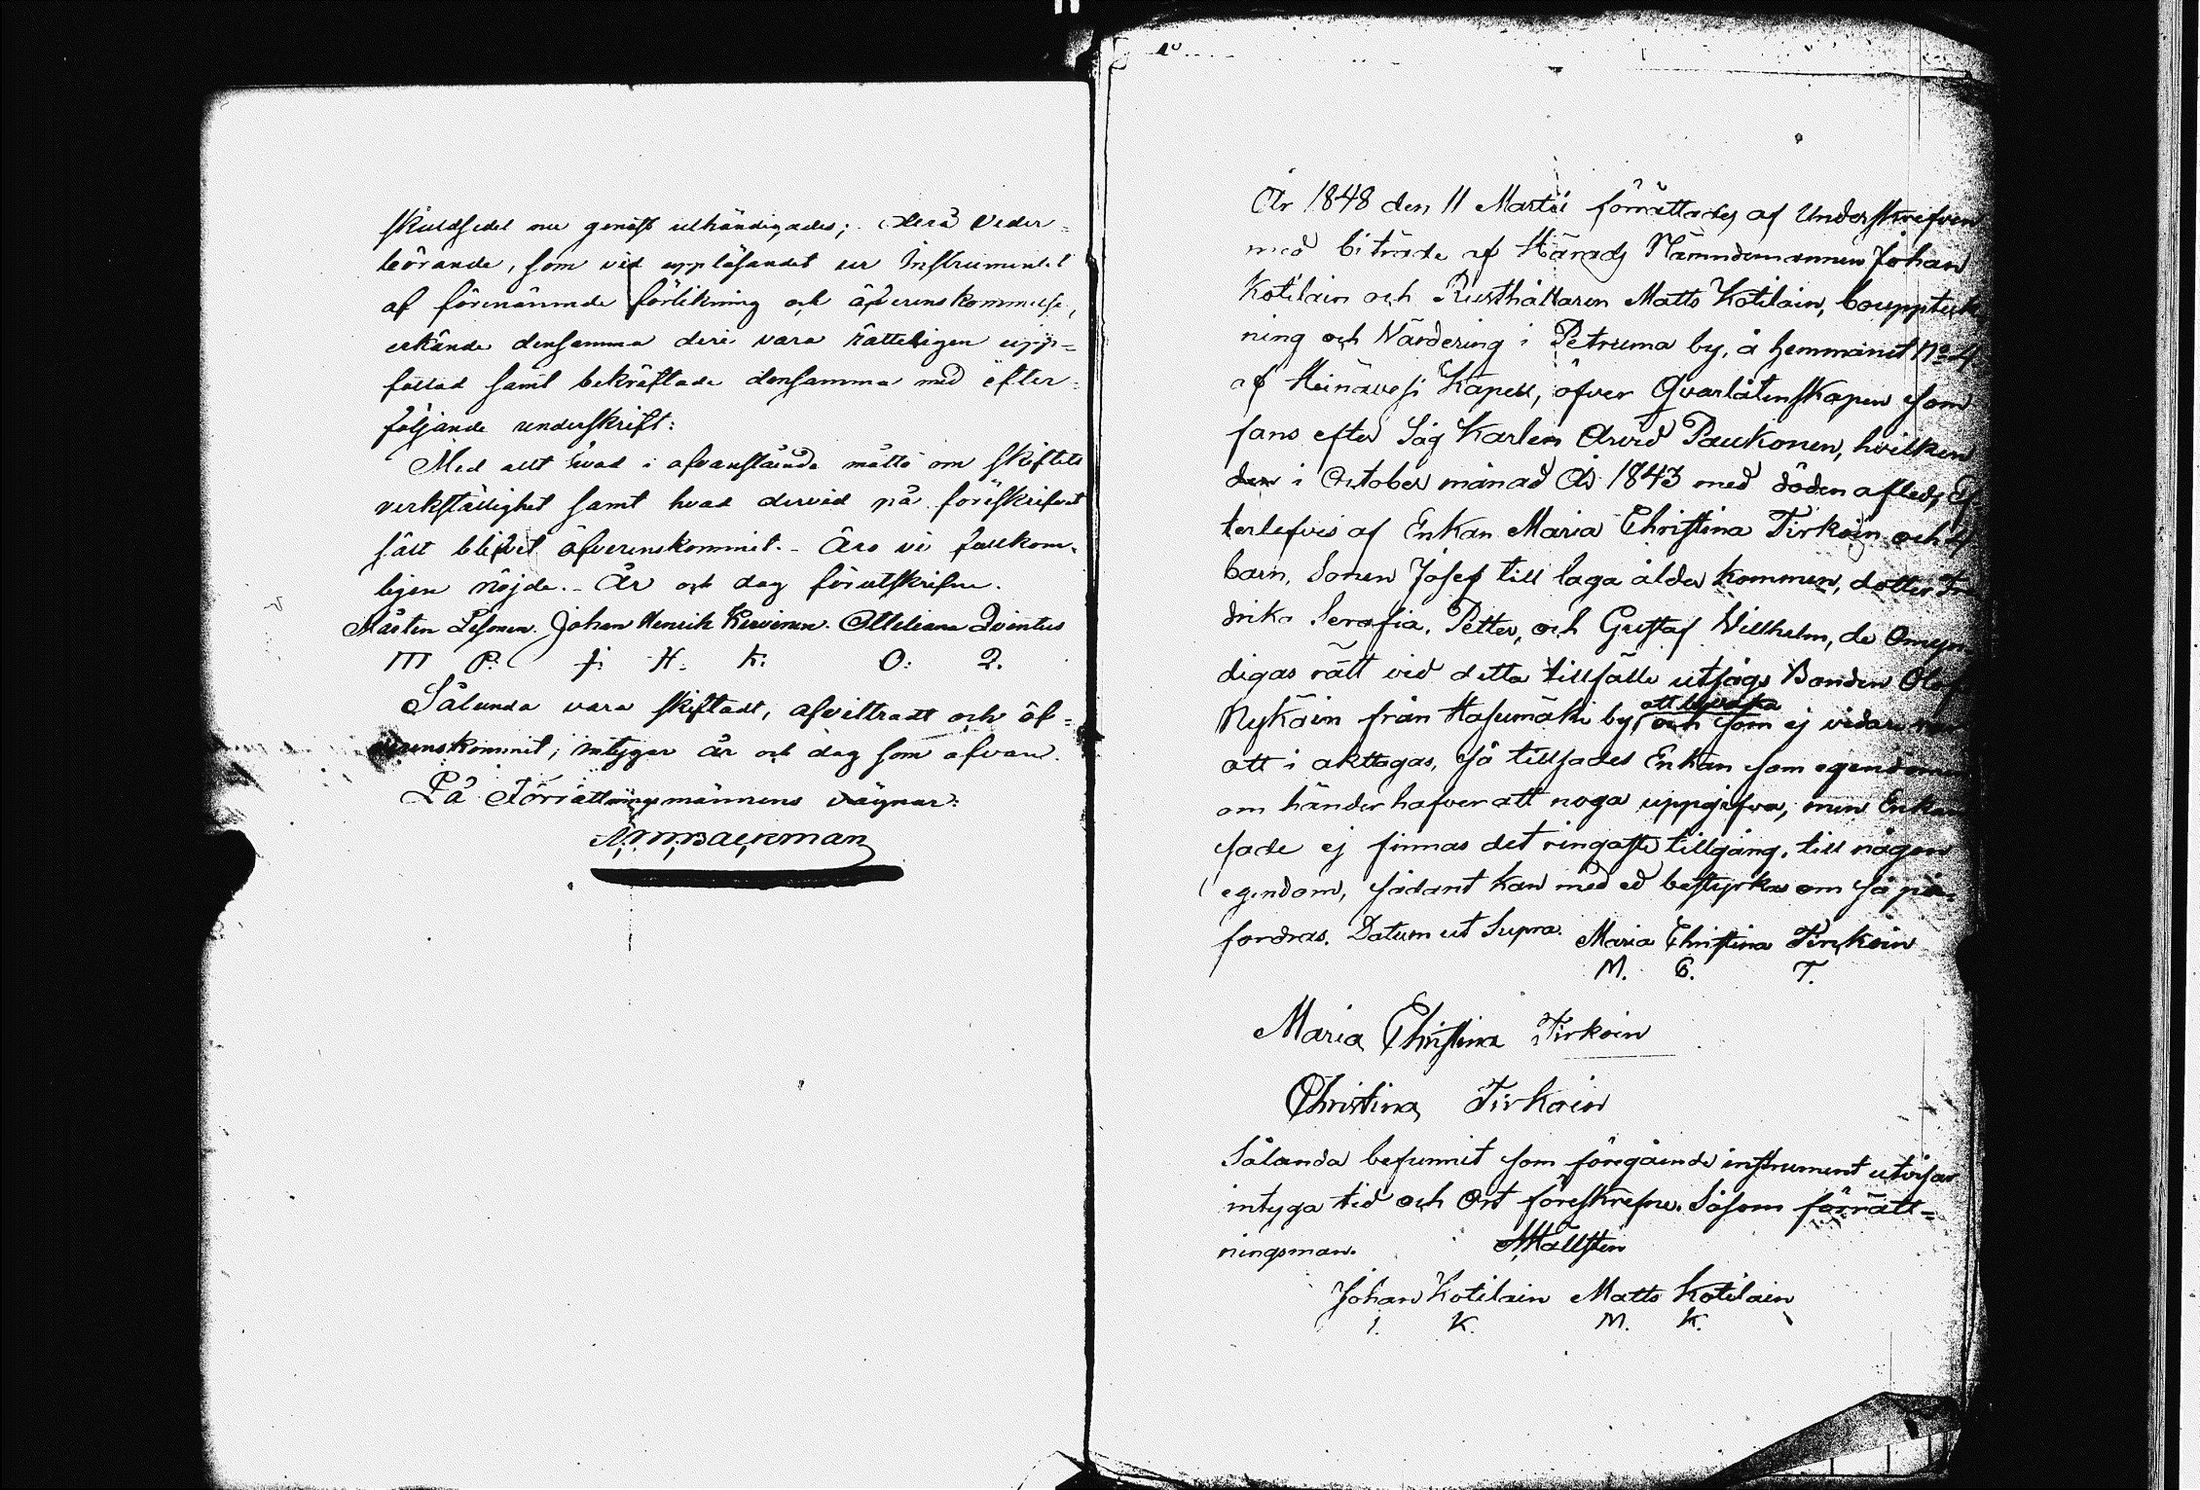 skuldsedel nu genast uthändigades; desse Veder-
börande, som vid uppläsandet ur Instrumentet
af förenämnde förlikning och öfverenskommelse,
erkände densamma deri vara rätteligen upp-
fattad samt bekräftade densamma med efter-
följande underskrift:
Med allt hvad i ofvanstående måtto om skiftets
verkställighet samt hvad dervid på föreskrifvet
sätt blifvit öfverenskommit. Äro vi fullkom-
ligen nöjde. År och dag förutskrifne.
Mårten Johan Henrik Otteliana
M P. J. H. K. O: Q.
Sålunda vara skiftadt, afvittradt och öf-
verenskommit; intygar år och dag som ofvan.
På Förrättningsmännens vägnar:
Backman
År 1848 den 11 Martii förrättades af Underskrefven
med biträde af Härads Nämndemannen Johan
Kotilain och Rusthållaren Matts Kotilain, boupptek
ning och Värdering i Petruma by, å hemmanet No 4
af Heinävesi Kapell, öfver Qvarlåtenskapen som
fans efter Såg Karlen Arvid Paukonen, hvilken
den i October månad År 1843 med döden afled, Ef
terlefves af Enkan Maria Christina Tirkoin och 4
barn, Sonen Josef till laga ålder kommen, dotter Fre
drika Serafia, Petter, och Gustaf Willhelm, de Omyn
digas rätt vid detta tillfälle utsågs Bonden Olof
Nykäin från Hasumäki by, och som ej vidare var
att bevaka
att i akttagas, så tillsades Enkan som egendomen
om händer hafver att noga uppgifva, men Enkan
sade ej finnas det ringaste tillgång, till någon
egendom, sådant kan med ed bestyrkas om så på-
fordras. Datum ut Supra. Maria Christina Tirkoin
M. C. T.
Maria Christina Tirkoin
Christina Tirkoin
Sålunda befunnit som föregående instrument utvisar
intyga tid och Ort föreskrefne. Såsom förrätt-
ningsman. Hallsten
Johan Kotilain Matts Kotilain
J. K. M. K.